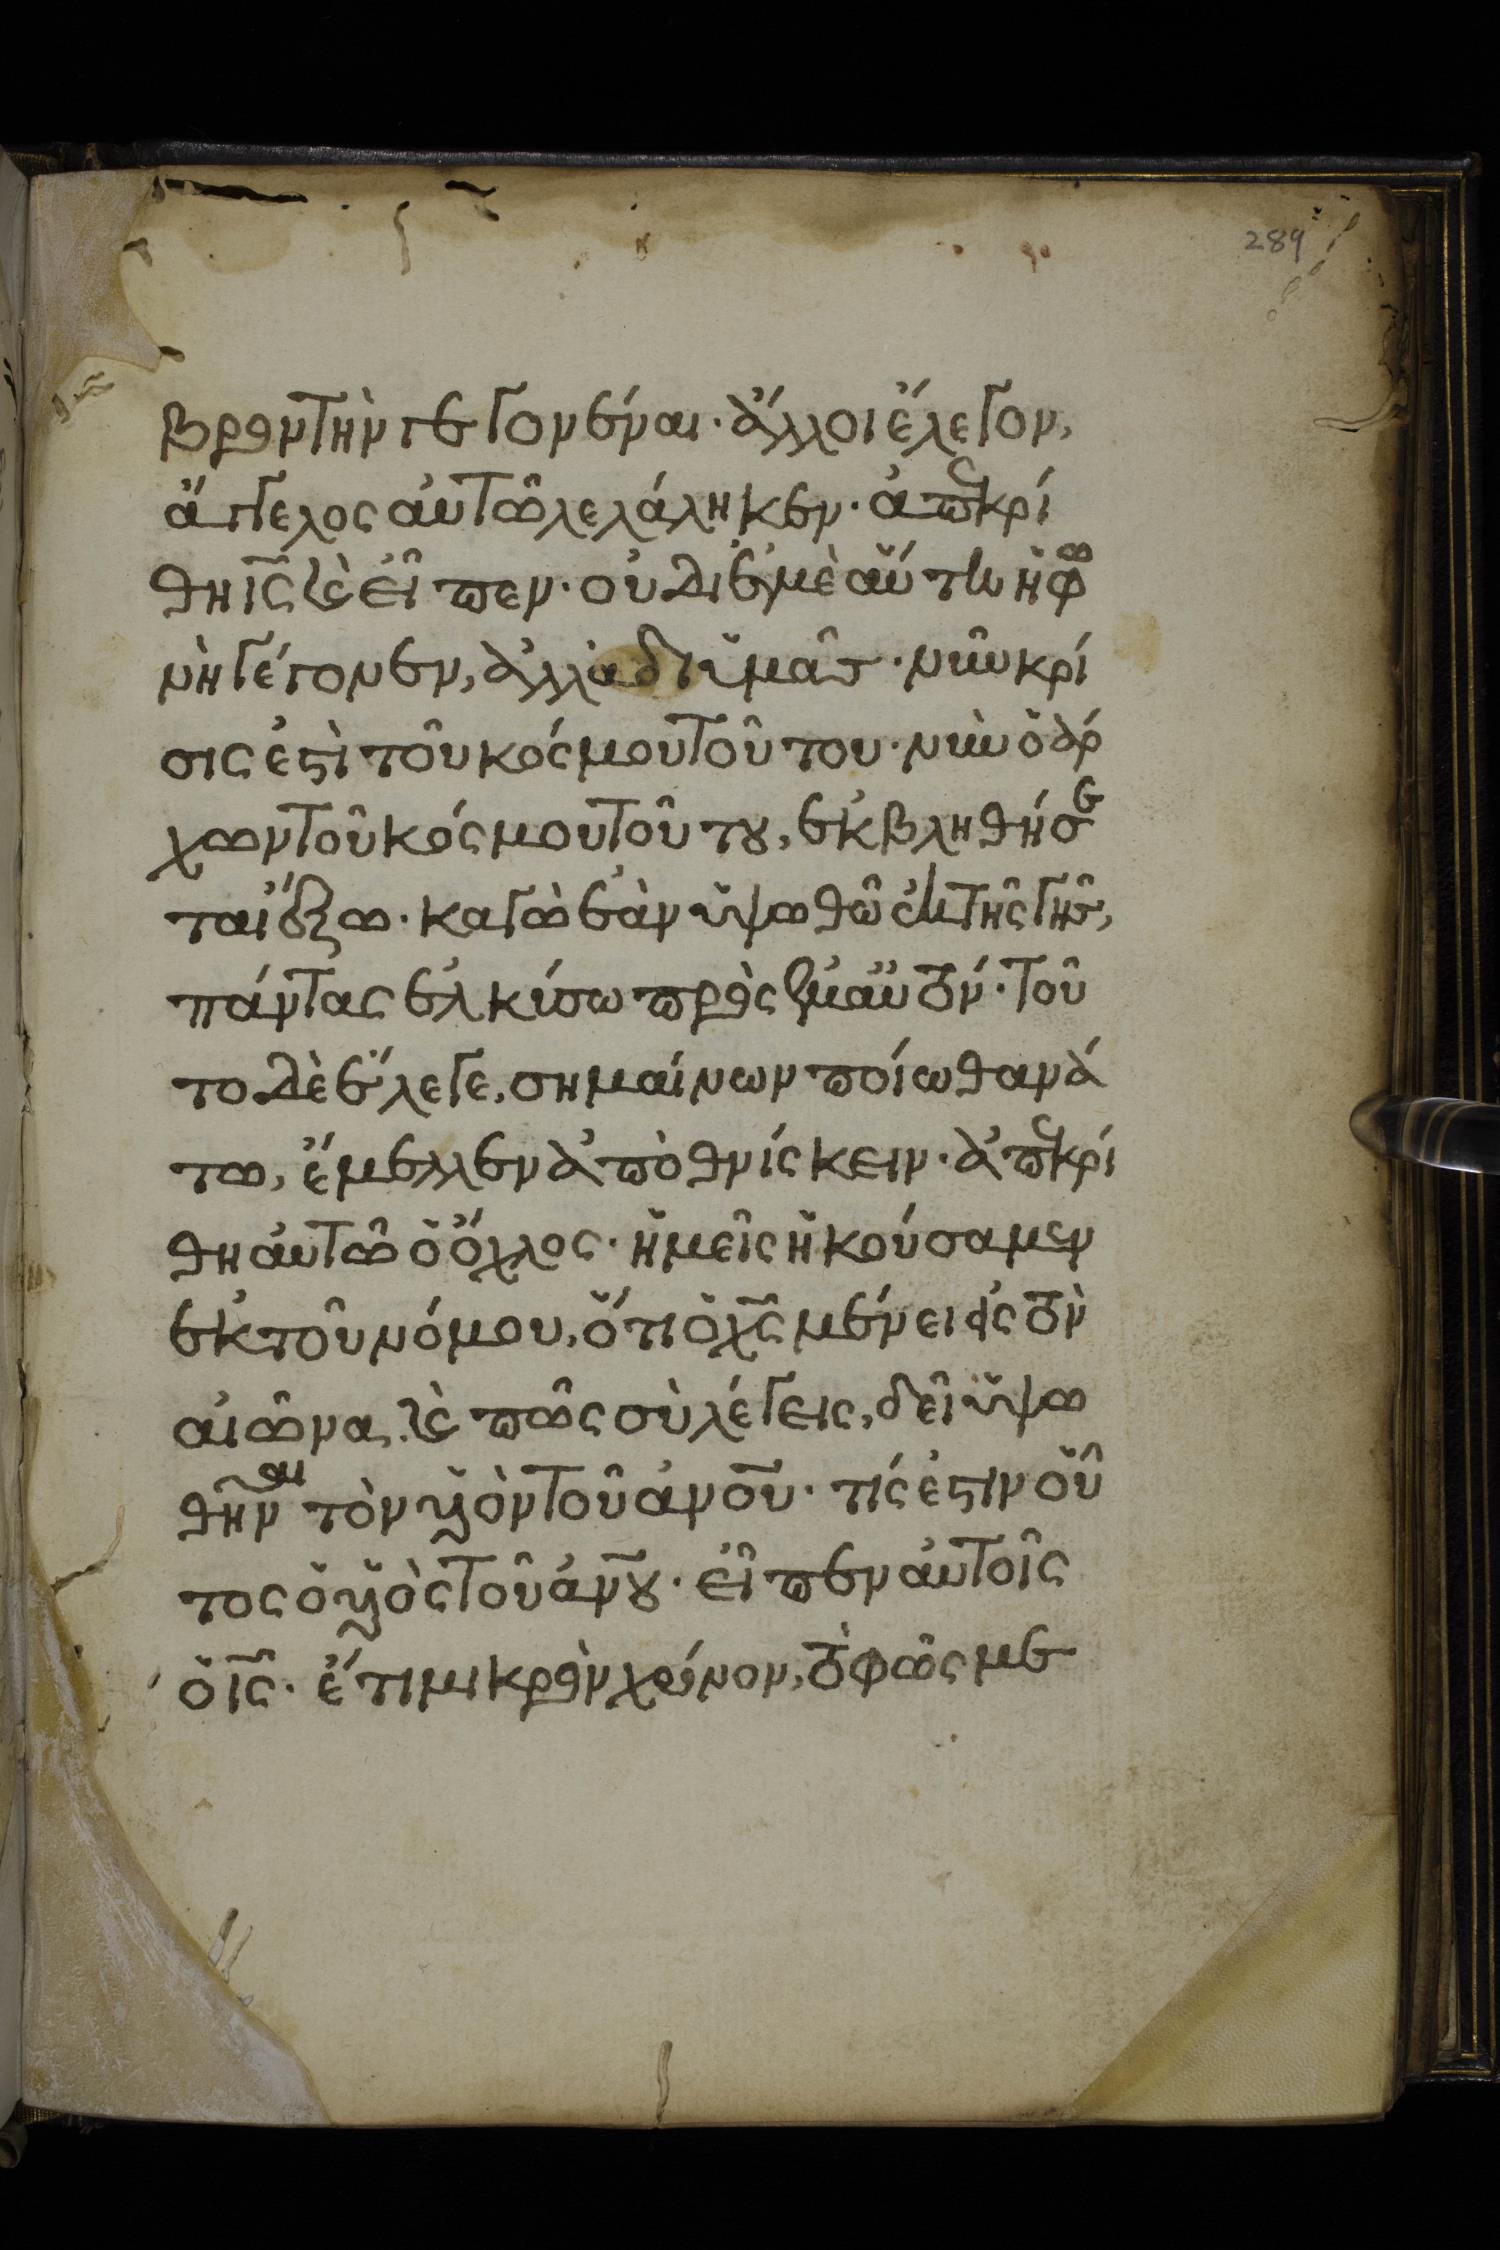 289
βροντὴν γεγονέναι· ἄλλοι ἔλεγον,
ἄγγελος αὐτῶ λελάληκεν· ἀπεκρί
θη ἰς̅ κὲ εἶπεν· οὐ δι' ἐμὲ αὕτη ἡ φω
νὴ γέγονεν, ἀλλὰ δι' ὑμᾶς· νῦν κρί
σις ἐστὶ τοῦ κόσμου τούτου· νῦν ὁ ἄρ
χων τοῦ κόσμου τούτου, ἐκβληθήσε
ται ἔξω· καγὼ ἐὰν ὑψωθῶ ἐκ τῆς γῆς,
πάντας ἑλκύσω πρὸς ἐμαυτόν· τοῦ
το δὲ ἔλεγε, σημαίνων ποίω θανά
τω, ἔμελλεν ἀποθνίσκειν· ἀπεκρί
θη αὐτῶ ὁ ὄχλος· ἡμεῖς ἠκούσαμεν
ἐκ τοῦ νόμου, ὅτι ὁ χς̅ μένει εἰς τὸν
αἰῶνα, κὲ πῶς σὺ λέγεις, δεῖ ὑψω
θῆναι τὸν υἱὸν τοῦ ἀνου̅· τίς ἐστιν οὗ
τος ὁ υἱὸς τοῦ ἀνου̅· εἶπεν αὐτοῖς
ὁ ἰς̅· ἔτι μικρὸν χρόνον, τὸ φῶς με